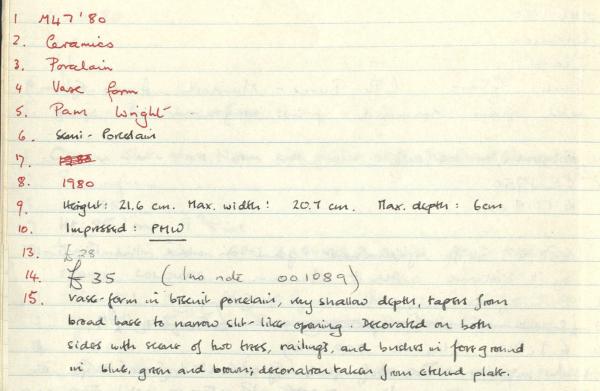 1 M47'80
2. Ceramics
3. Porcelain
4 Vase form
5. Pam Wright
6. Semi-Porcelain
17. 1980
8. 1980
9 Height: 21.6 cm. Max. width: 20.7 cm. Max. depth: 6cm
10. Impressed: PMW
13. £28
14. £35 (Inv note 001089)
15. Vase-form in biscuit porcelain, very shallow depth, tapers from
broad base to narrow slit-like opening. Decorated on both
sides with scene of two trees, railings, and bushes in foreground
in blue, green and brown; decoration taken from etched plate.